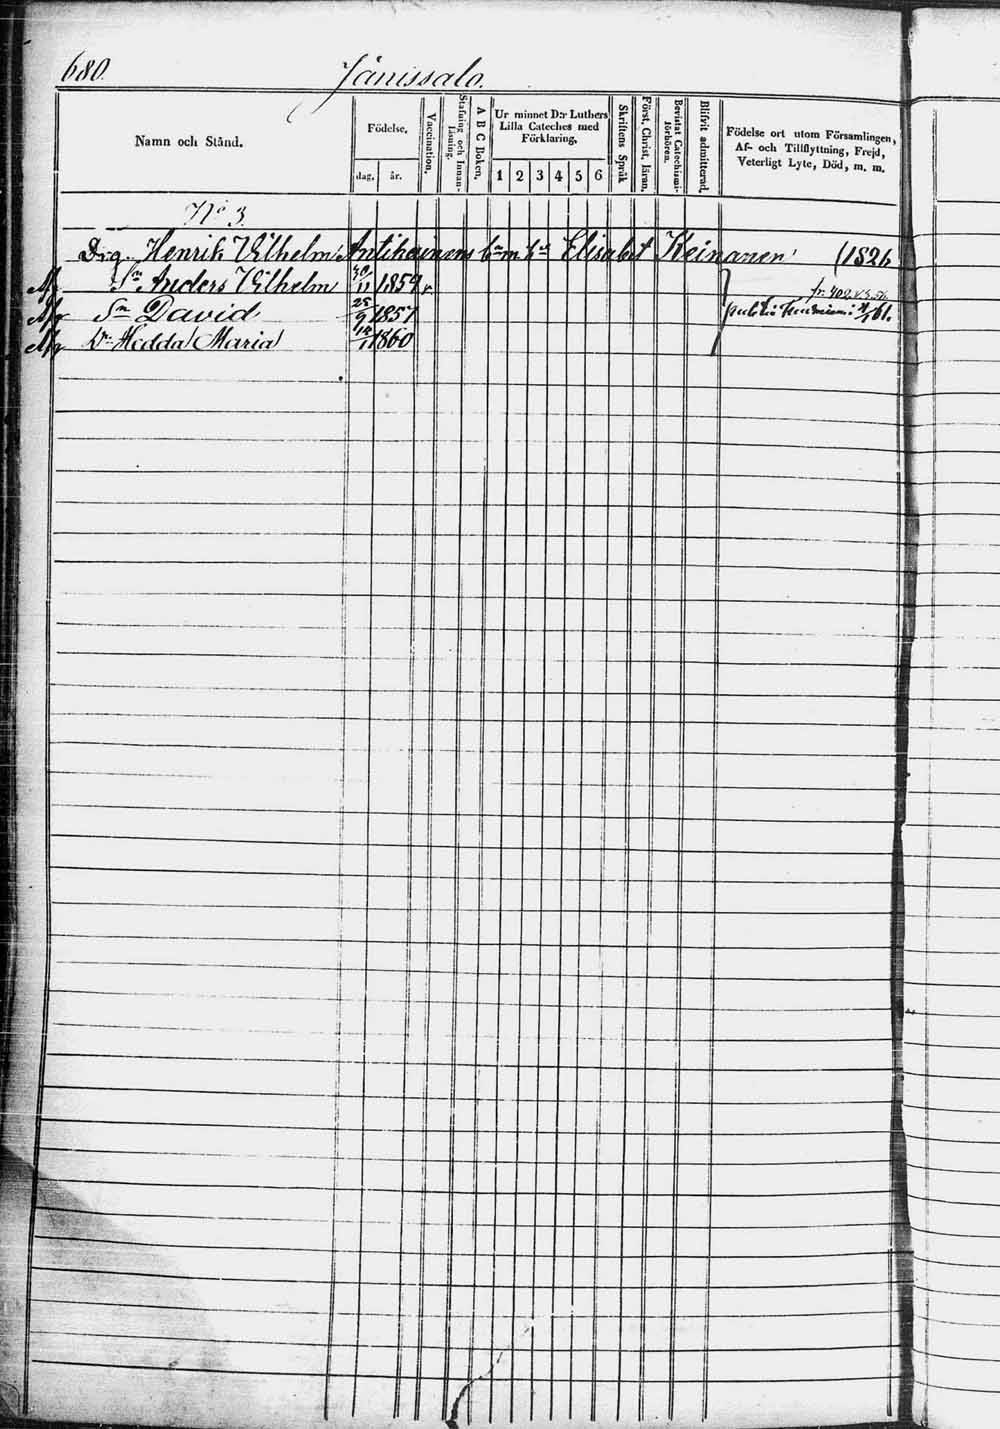 680. Jänissalo.
Namn och Stånd.
Födelse,
dag. år.
Vaccination.
Stafning och Innanläsning.
A B C Boken.
Ur minnet D:r Luthers Lilla Cateches med Förklaring,
1 2 3 4 5 6
Skriftens Språk
Först. Christ. läran.
Bevistat Catechismiförhören.
Blifvit admitterad.
Födelse ort utom Församlingen, Af- och Tillflyttning, Frejd, Veterligt Lyte, Död, m. m.
No 3
Drg. Henrik Vilhelm Antikainens Elisabet Keinanen (1826
Sn Anders Vilhelm 1859 v
Sn David 25/9 1857 /61.
Dr Hedda Maria 1860